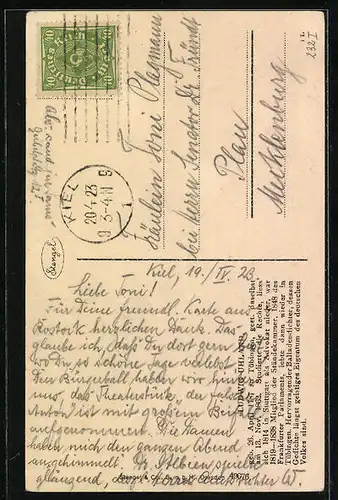 232 I
40 Deutsches Reich 40
KIEL
20.4.23
3-4 N
Fräulein Toni Plagmann
bei Herrn Senator Dr. Fründt
Plau
Mecklenburg
Stengel
Kiel, 19./IV. 23.
Liebe Toni!
Für Deine freundl. Karte aus
Rostock herzlichen Dank. Das
glaube ich, daß Du dort gern
wo Du so schöne Tage verlebst.
Den Bürgerball haben wir hinter
uns, das Theaterstück, „der falsche
Anton“ ist mit großem Beifall
aufgenommen. Die Damen
haben mich den ganzen Abend
angehimmelt. Dr. spielte
glänzend, W.
LUDWIG UHLAND
geb. 26. April 1787 in Tübingen, gest. daselbst
am 13. Nov. 1862. Studierte die Rechte, liess
sich 1814 in Stuttgart als Advokat nieder, war
1819—1838 Mitglied der Ständekammer, 1848 des
Frankfurter Parlaments, lebte dann wieder in
Tübingen. Hervorragender Balladendichter, dessen
Gedichte längst geistiges Eigentum des deutschen
Volkes sind.